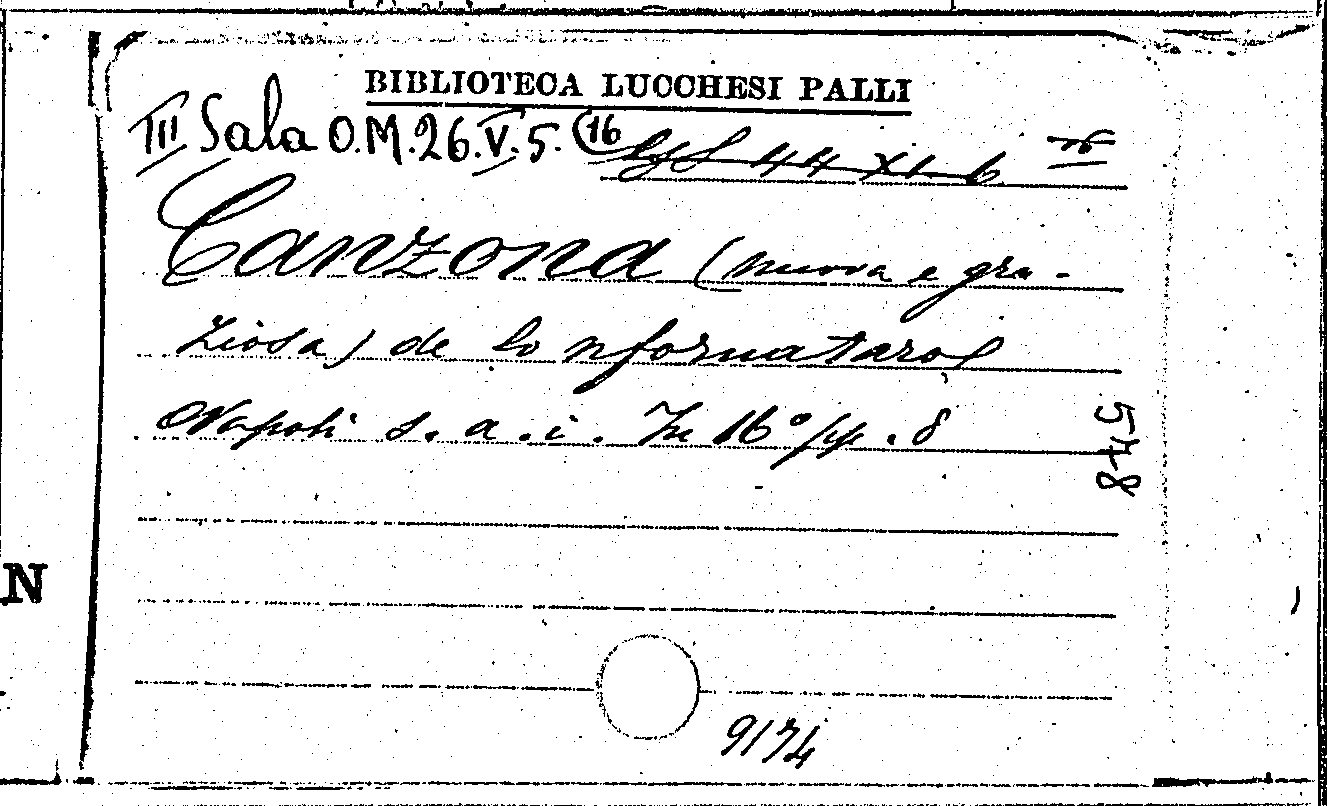 BIBLIOTECA LUCCHESI PALLI
III Sala O.M.26.V.5.(16
44 XI 6 16
Canzona (nuova e gra-
ziosa) de lo nfornataro
Napoli s.a.i. In 16° pp. 8
548
N
9174